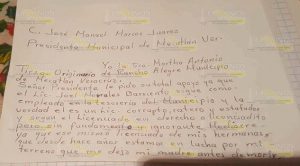 C. José Manuel Marcos Juarez
Presidente Municipal de Mecatlán Ver.
Yo la Sra. Martha Antonio
Tirso Originario de Alegre Municipio
de Mecatlán Veracruz.
Señor Presidente le pido su total apoyo ya que
el Lic. Joel Morales sigue como
empleado en la tesorería del Municipio y la
verdad el es un licenciado ratero y estafador
y según el Licenciado en derecho o licenciadito
pero sin fundamento e ignorante
ya que ese mismo licenciado de mis hermanas
que desde hace años estamos en lucha por mi
terreno que me dejo mi madre antes de morir